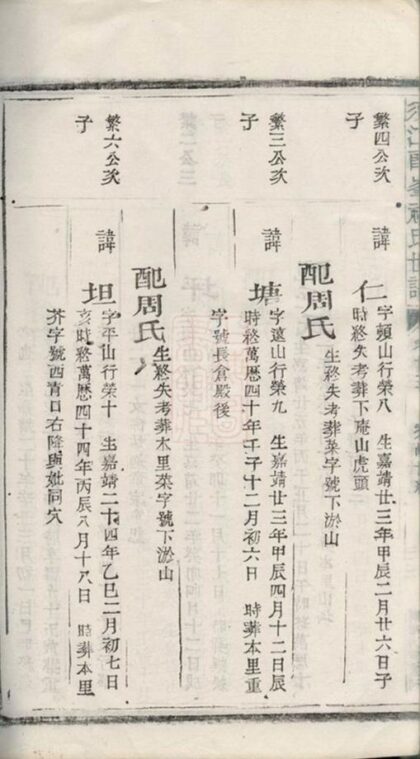 繁四公次
子
諱
仁
字頻山行榮八　生嘉靖廿三年甲辰二月廿六日子
時終失考葬下庵山虎頭
配周氏
生終失考葬菜字號下淤山
繁三公次
子
諱
塘
字遠山行榮九　生嘉靖廿三年甲辰四月十二日辰
時終萬曆四十年壬子十二月初六日　時葬本里重
字號長倉殿後
配周氏
生終失考葬本里菜字號下淤山
繁六公次
子
諱
坦
字平山行榮十　生嘉靖二十四年乙巳二月初七日
亥時終萬曆四十四年丙辰八月十八日　時葬本里
芥字號西青日右降與妣同穴